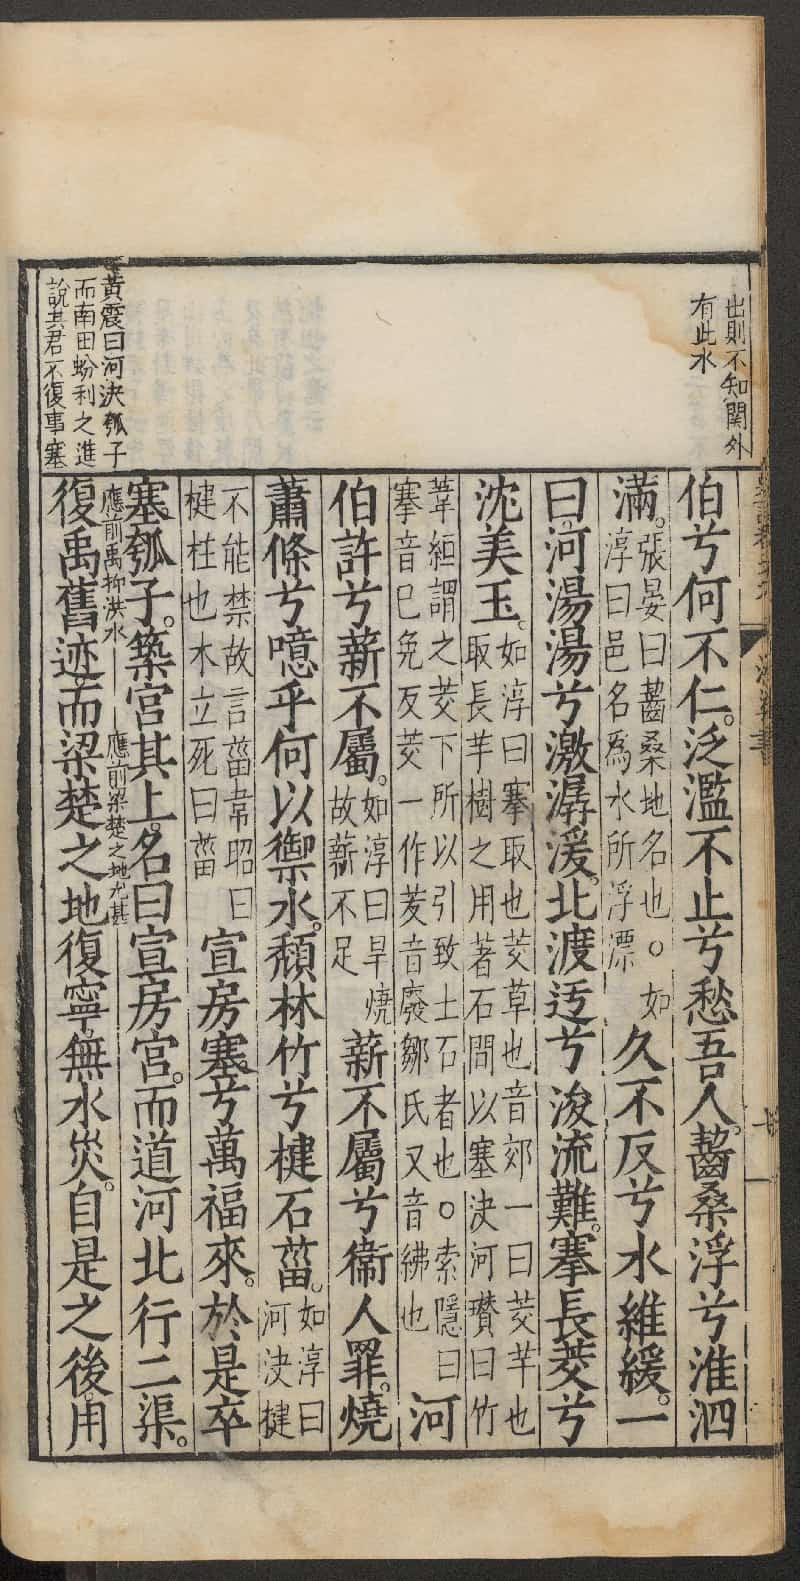 出則不知關外
有此水
黃震曰河決瓠子
而南田蚡利之進
說其君不復事塞
伯兮何不仁。泛濫不止兮愁吾人。齧桑浮兮淮泗
滿。張晏曰齧桑地名也。○如淳曰邑名爲水所浮漂久不反兮水維緩。一
曰。河湯湯兮激潺湲。北渡迂兮浚流難。搴長茭兮
沈美玉。如淳曰搴取也茭草也音郊一曰茭芉也取長芉樹之用著石間以塞決河瓚曰竹
葦絙謂之茭下所以引致土石者也。○索隱曰搴音己免反茭一作茇音廢鄒氏又音紼也河
伯許兮薪不屬。如淳曰旱燒故薪不足薪不屬兮衞人罪。燒
蕭條兮噫乎何以禦水。頹林竹兮楗石菑。如淳曰河決楗
不能禁故言菑韋昭曰楗柱也木立死曰菑宣房塞兮萬福來。於是卒
塞瓠子。築宮其上。名曰宣房宮。而道河北行二渠。
應前禹抑洪水
應前梁楚之地尤甚
復禹舊迹而梁楚之地復寧無水災。自是之後。用